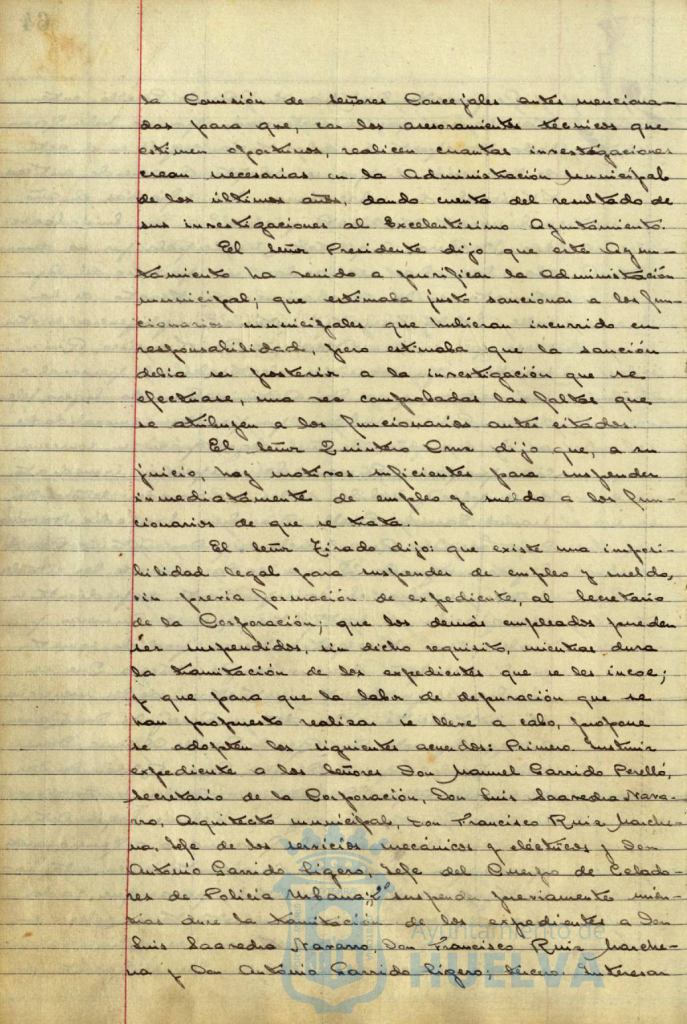 la Comisión de Señores Concejales antes menciona-
dos para que, con los asesoramientos técnicos que
estimen oportunos, realicen cuantas investigaciones
crean necesarias en la Administración Municipal
de los últimos años, dando cuenta del resultado de
sus investigaciones al Excelentísimo Ayuntamiento.
El Señor Presidente dijo que este Ayun-
tamiento ha venido a purificar la Administración
municipal; que estimaba justo sancionar a los fun-
cionarios municipales que hubieran incurrido en
responsabilidad, pero estimaba que la sanción
debía ser posterior a la investigación que se
efectuase, una vez comprobadas las faltas que
se atribuyen a los funcionarios antes citados.
El Señor Quintero Cruz dijo que, a su
juicio, hay motivos suficientes para suspender
inmediatamente de empleo y sueldo a los fun-
cionarios de que se trata.
El Señor Tirado dijo: que existe una imposi-
bilidad legal para suspender de empleo y sueldo,
sin previa formación de expediente, al Secretario
de la Corporación; que los demás empleados pueden
ser suspendidos, sin dicho requisito, mientras dura
la tramitación de los expedientes que se les incoe;
y que para que la labor de depuración que se
han propuesto realizar se lleve a cabo, propone
se adopten los siguientes acuerdos: Primero. Instruir
expediente a los Señores Don Manuel Garrido Perelló,
Secretario de la Corporación, Don Luis Saavedra Nava-
rro, Arquitecto municipal, Don Francisco Ruiz Marche-
na, Jefe de los servicios mecánicos y eléctricos y Don
Antonio Garrido Ligero, Jefe del Cuerpo de Celado-
res de Policía Urbana; 2º suspender previamente mien-
tras dure la tramitación de los expedientes a Don
Luis Saavedra Navarro, Don Francisco Ruiz Marche-
na y Don Antonio Garrido Ligero; tercero. Interesar
Ayuntamiento de
HUELVA
64